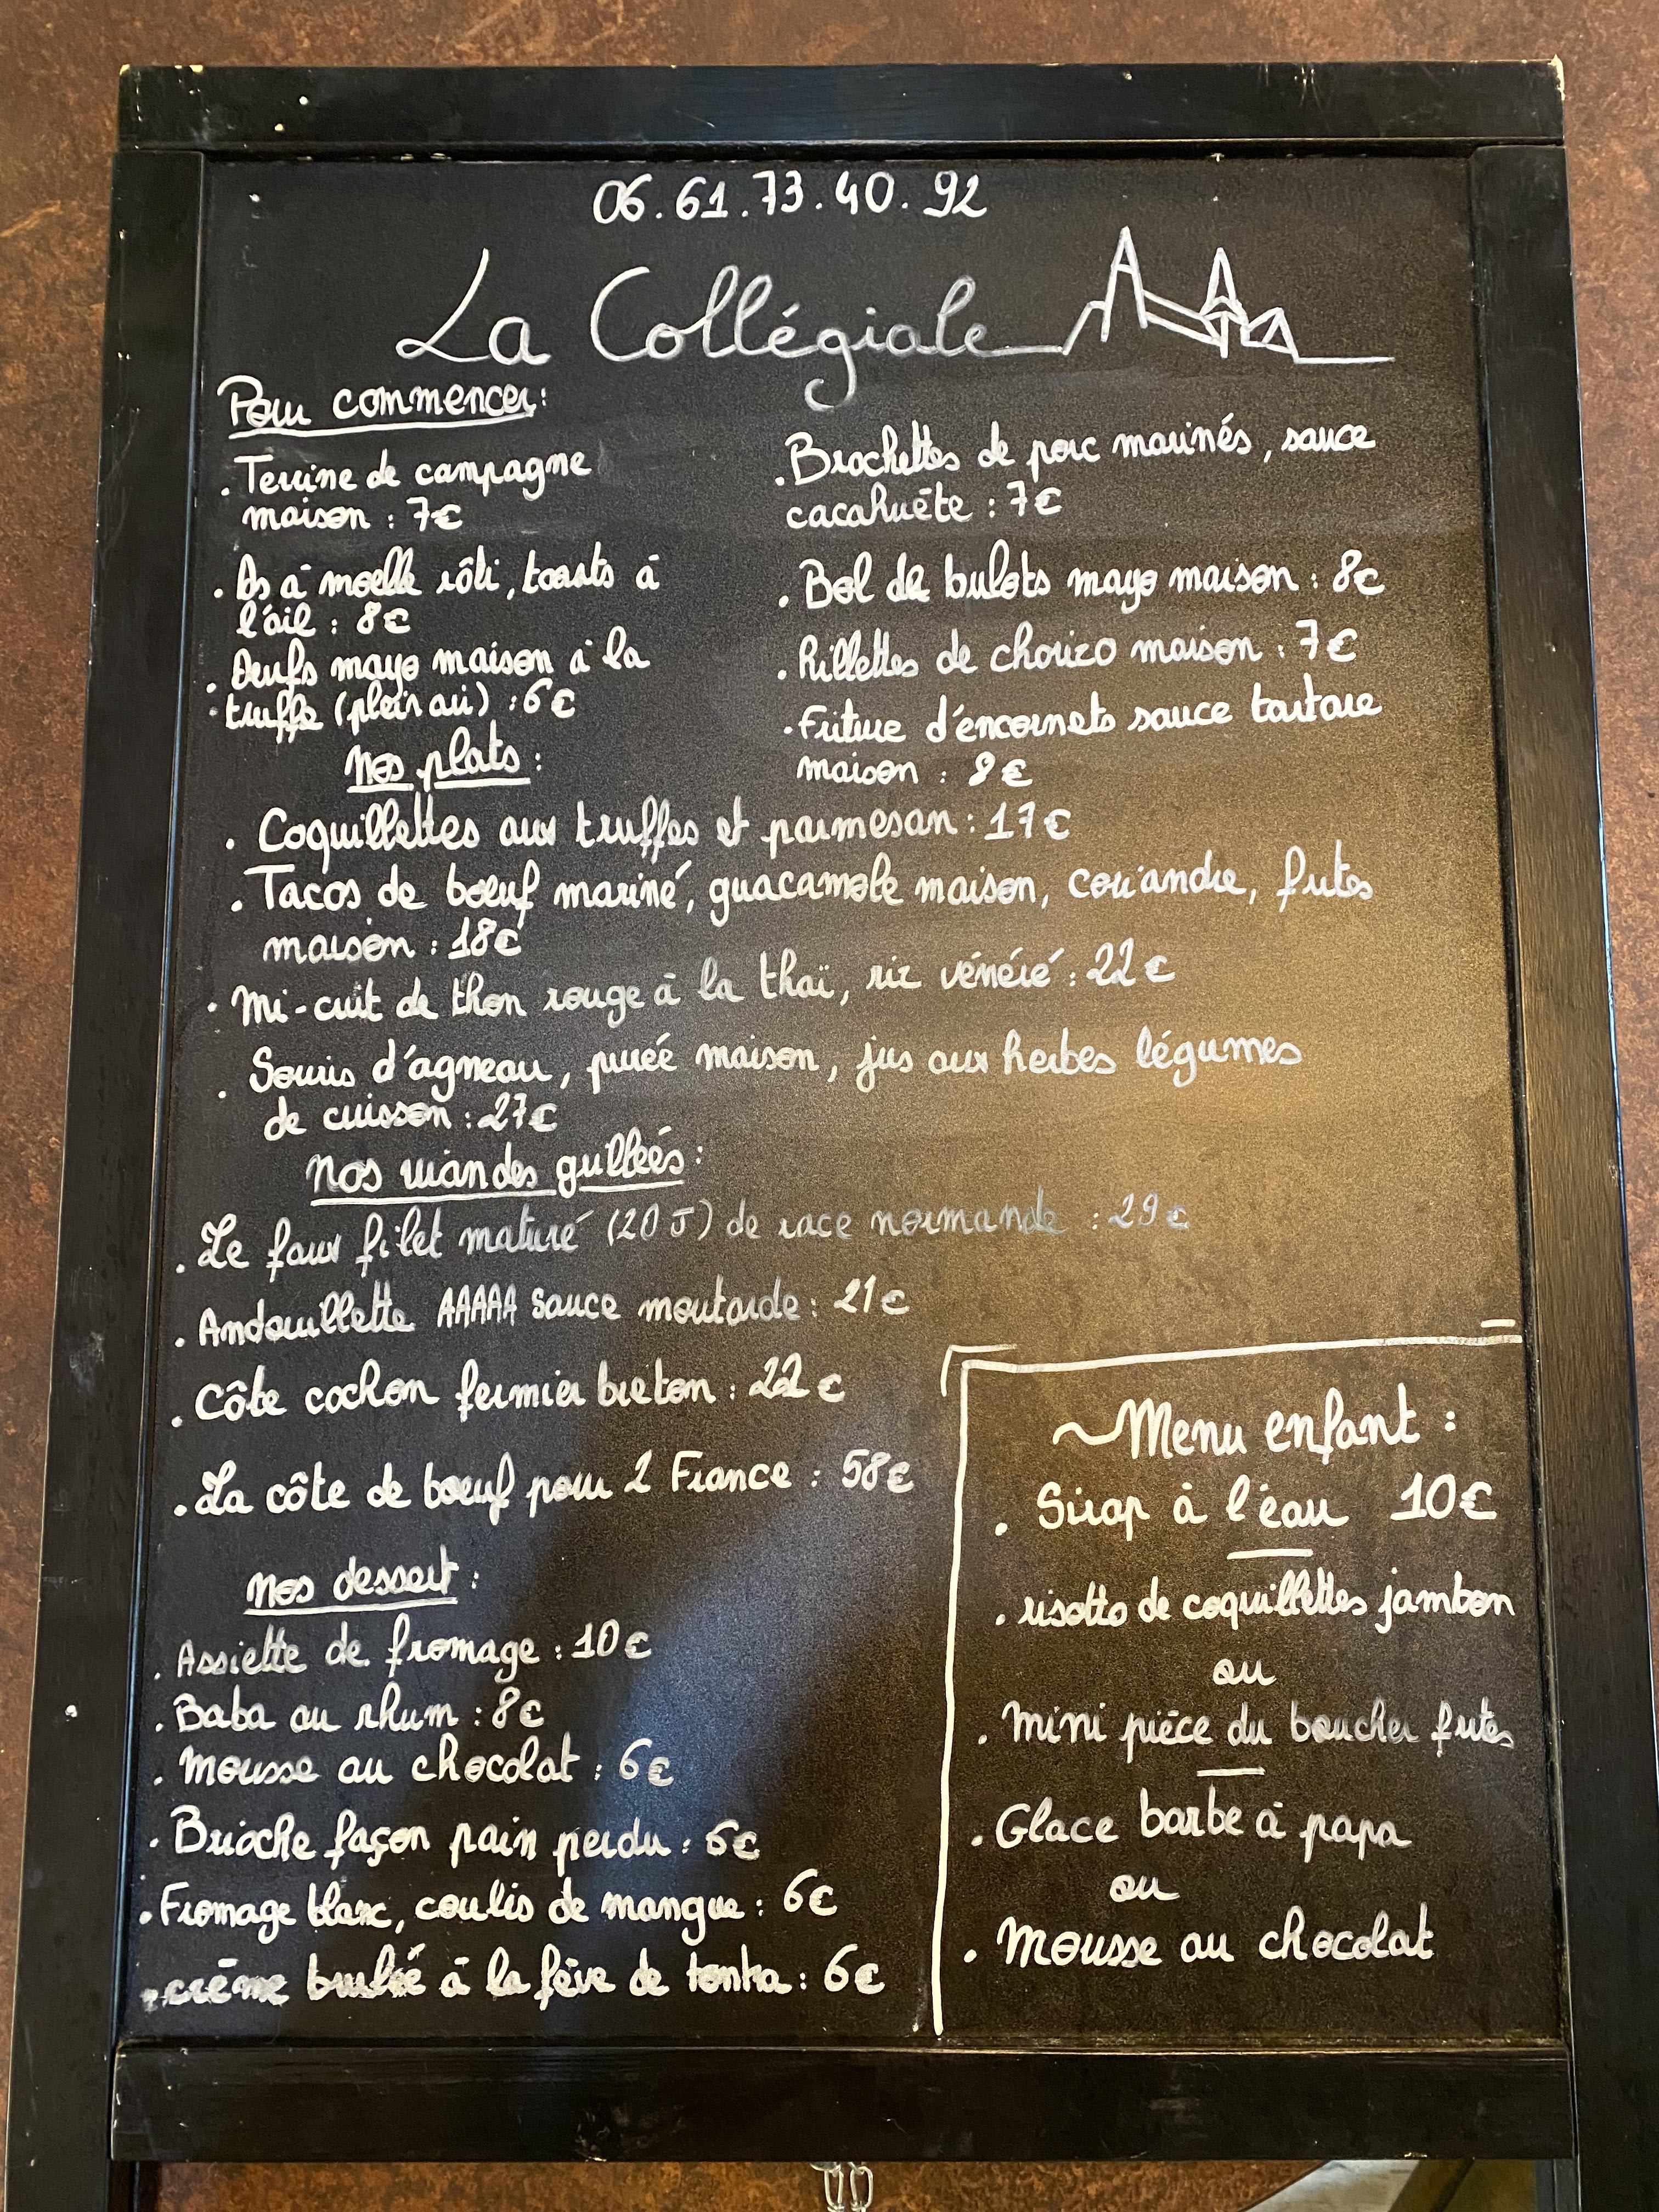 06.61.73.40.92
La Collégiale
Pour commencer:
. Terrine de campagne
maison : 7€
. Os à moelle rôti, toasts à
l'ail : 8€
. Oeufs mayo maison à la
. truffe (plein air) : 6€
. Brochettes de porc marinés, sauce
cacahuète : 7€
. Bol de bulots mayo maison : 8€
. Rillettes de chorizo maison : 7€
. Friture d'encornets sauce tartare
maison : 8€
Nos plats :
. Coquillettes aux truffes et parmesan : 17€
. Tacos de bœuf mariné, guacamole maison, coriandre, frites
maison : 18€
. Mi-cuit de thon rouge à la thaï, riz vénéré : 22€
. Souris d'agneau, purée maison, jus aux herbes légumes
de cuisson : 27€
Nos viandes grillées :
. Le faux filet maturé (20 J) de race normande : 29€
. Andouillette AAAAA sauce moutarde : 21€
. Côte cochon fermier breton : 22€
. La côte de bœuf pour 2 France : 58€
Nos dessert :
. Assiette de fromage : 10€
. Baba au rhum : 8€
. Mousse au chocolat : 6€
. Brioche façon pain perdu : 6€
. Fromage blanc, coulis de mangue : 6€
. crème brulée à la fève de tonka : 6€
~Menu enfant :
. Sirop à l'eau 10€
. risotto de coquillettes jambon
ou
. Mini pièce du boucher frites
. Glace barbe à papa
ou
. Mousse au chocolat